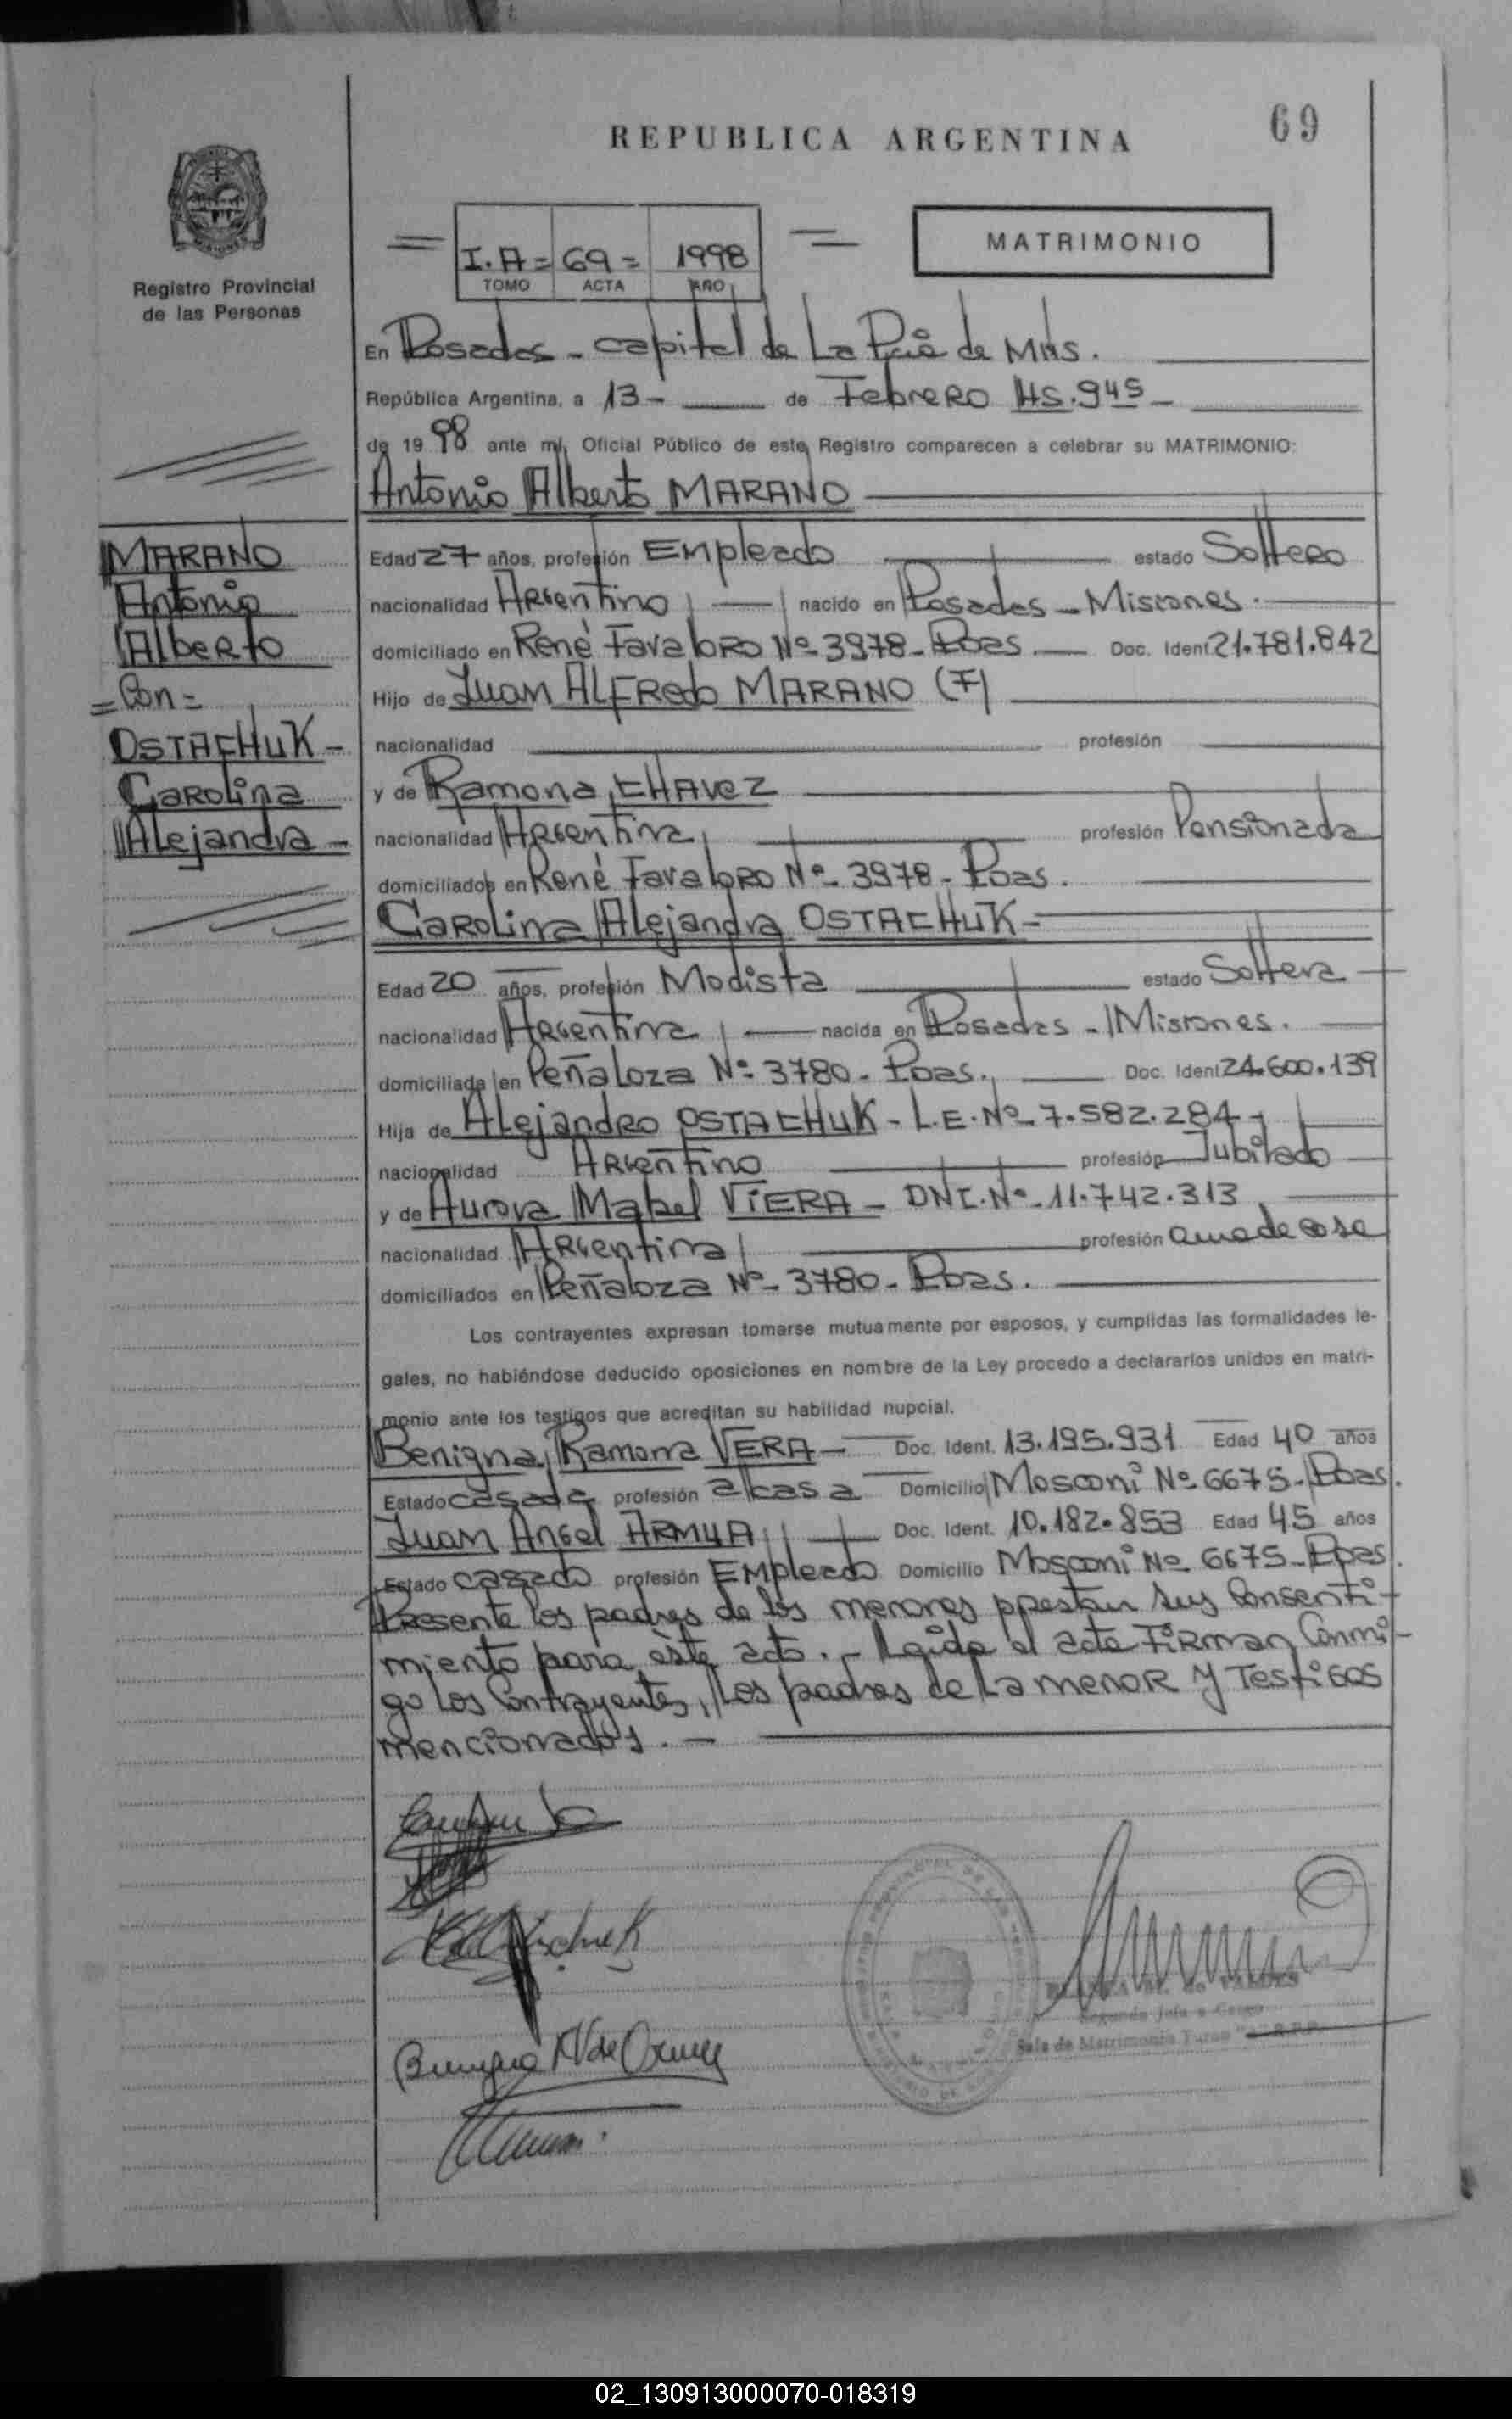 69
REPUBLICA ARGENTINA
MATRIMONIO
I. A = 69 = 1998
TOMO ACTA AÑO
Registro Provincial
de las Personas
En Posadas - capital de La Pcia de Mns.
República Argentina, a 13 - de Febrero HS. 945 -
de 1998 ante mí, Oficial Público de este Registro comparecen a celebrar su MATRIMONIO:
Antonio Alberto MARANO
MARANO
Antonio
Alberto
= Con =
OSTACHUK -
Carolina
Alejandra -
Edad 27 años, profesión Empleado estado Soltero
nacionalidad Argentino nacido en Posadas - Misiones.
domiciliado en René Favaloro Nº 3978 - Pdas Doc. Ident 21.781.842
Hijo de Juan ALFREDO MARANO (F)
nacionalidad profesión
y de Ramona CHAVEZ
nacionalidad Argentina profesión Pensionada
domiciliados en René Favaloro Nº - 3978 - Pdas.
Carolina Alejandra OSTACHUK -
Edad 20 años, profesión Modista estado Soltera
nacionalidad Argentina nacida en Posadas - Misiones.
domiciliada en Peñaloza Nº 3780 - Pdas. Doc. Ident 24.600.139
Hija de Alejandro OSTACHUK - L.E. Nº - 7.582.284 -
nacionalidad Argentino profesión Jubilado
y de Aurora Mabel VIERA - DNI. Nº - 11.742.313
nacionalidad Argentina profesión ama de casa
domiciliados en Peñaloza Nº - 3780 - Pdas.
Los contrayentes expresan tomarse mutuamente por esposos, y cumplidas las formalidades le-
gales, no habiéndose deducido oposiciones en nombre de la Ley procedo a declararlos unidos en matri-
monio ante los testigos que acreditan su habilidad nupcial.
Benigna Ramona VERA - Doc. Ident. 13.195.931 Edad 40 años
Estado casada profesión a/casa Domicilio Mosconi Nº 6675 - Pdas.
Juan Angel ARMUA Doc. Ident. 10.182.853 Edad 45 años
Estado casado profesión Empleado Domicilio Mosconi Nº 6675 - Pdas.
Presente los padres de los menores prestan sus Consenti-
miento para éste acto. - Leída el acta Firman Conmi-
go los Contrayentes, los padres de La menor y Testigos
mencionados. -
Segundo Jefe a Cargo
Sala de Matrimonio Turno
02_130913000070-018319